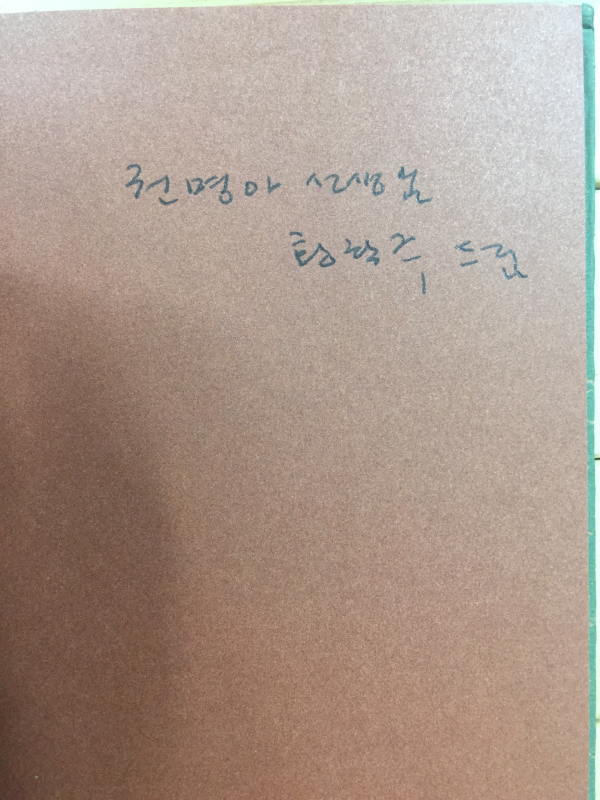 권명아 선생님
황학주 드림